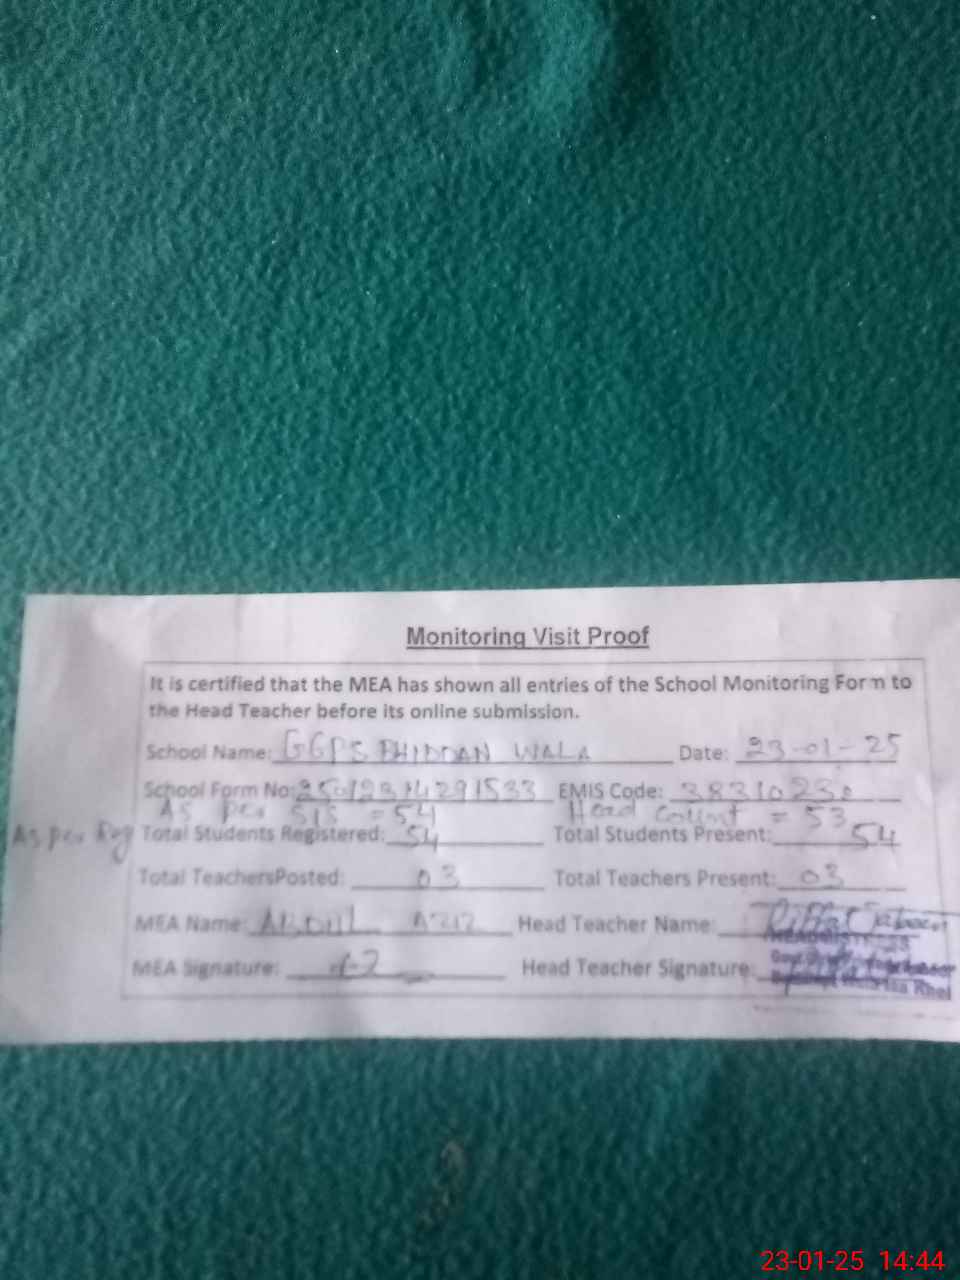 Monitoring Visit Proof
It is certified that the MEA has shown all entries of the School Monitoring Form to
the Head Teacher before its online submission.
School Name: GGPS BHIDDAN WALA Date: 23-01-25
School Form No: 25012314291533 EMIS Code: 38310230
As per SIS = 54 Head Count = 53
As per Reg Total Students Registered: 54 Total Students Present: 54
Total TeachersPosted: 03 Total Teachers Present: 03
MEA Name: ABDUL AZIZ Head Teacher Name: Riffat
MEA Signature: Head Teacher Signature:
Khel
23-01-25 14:44